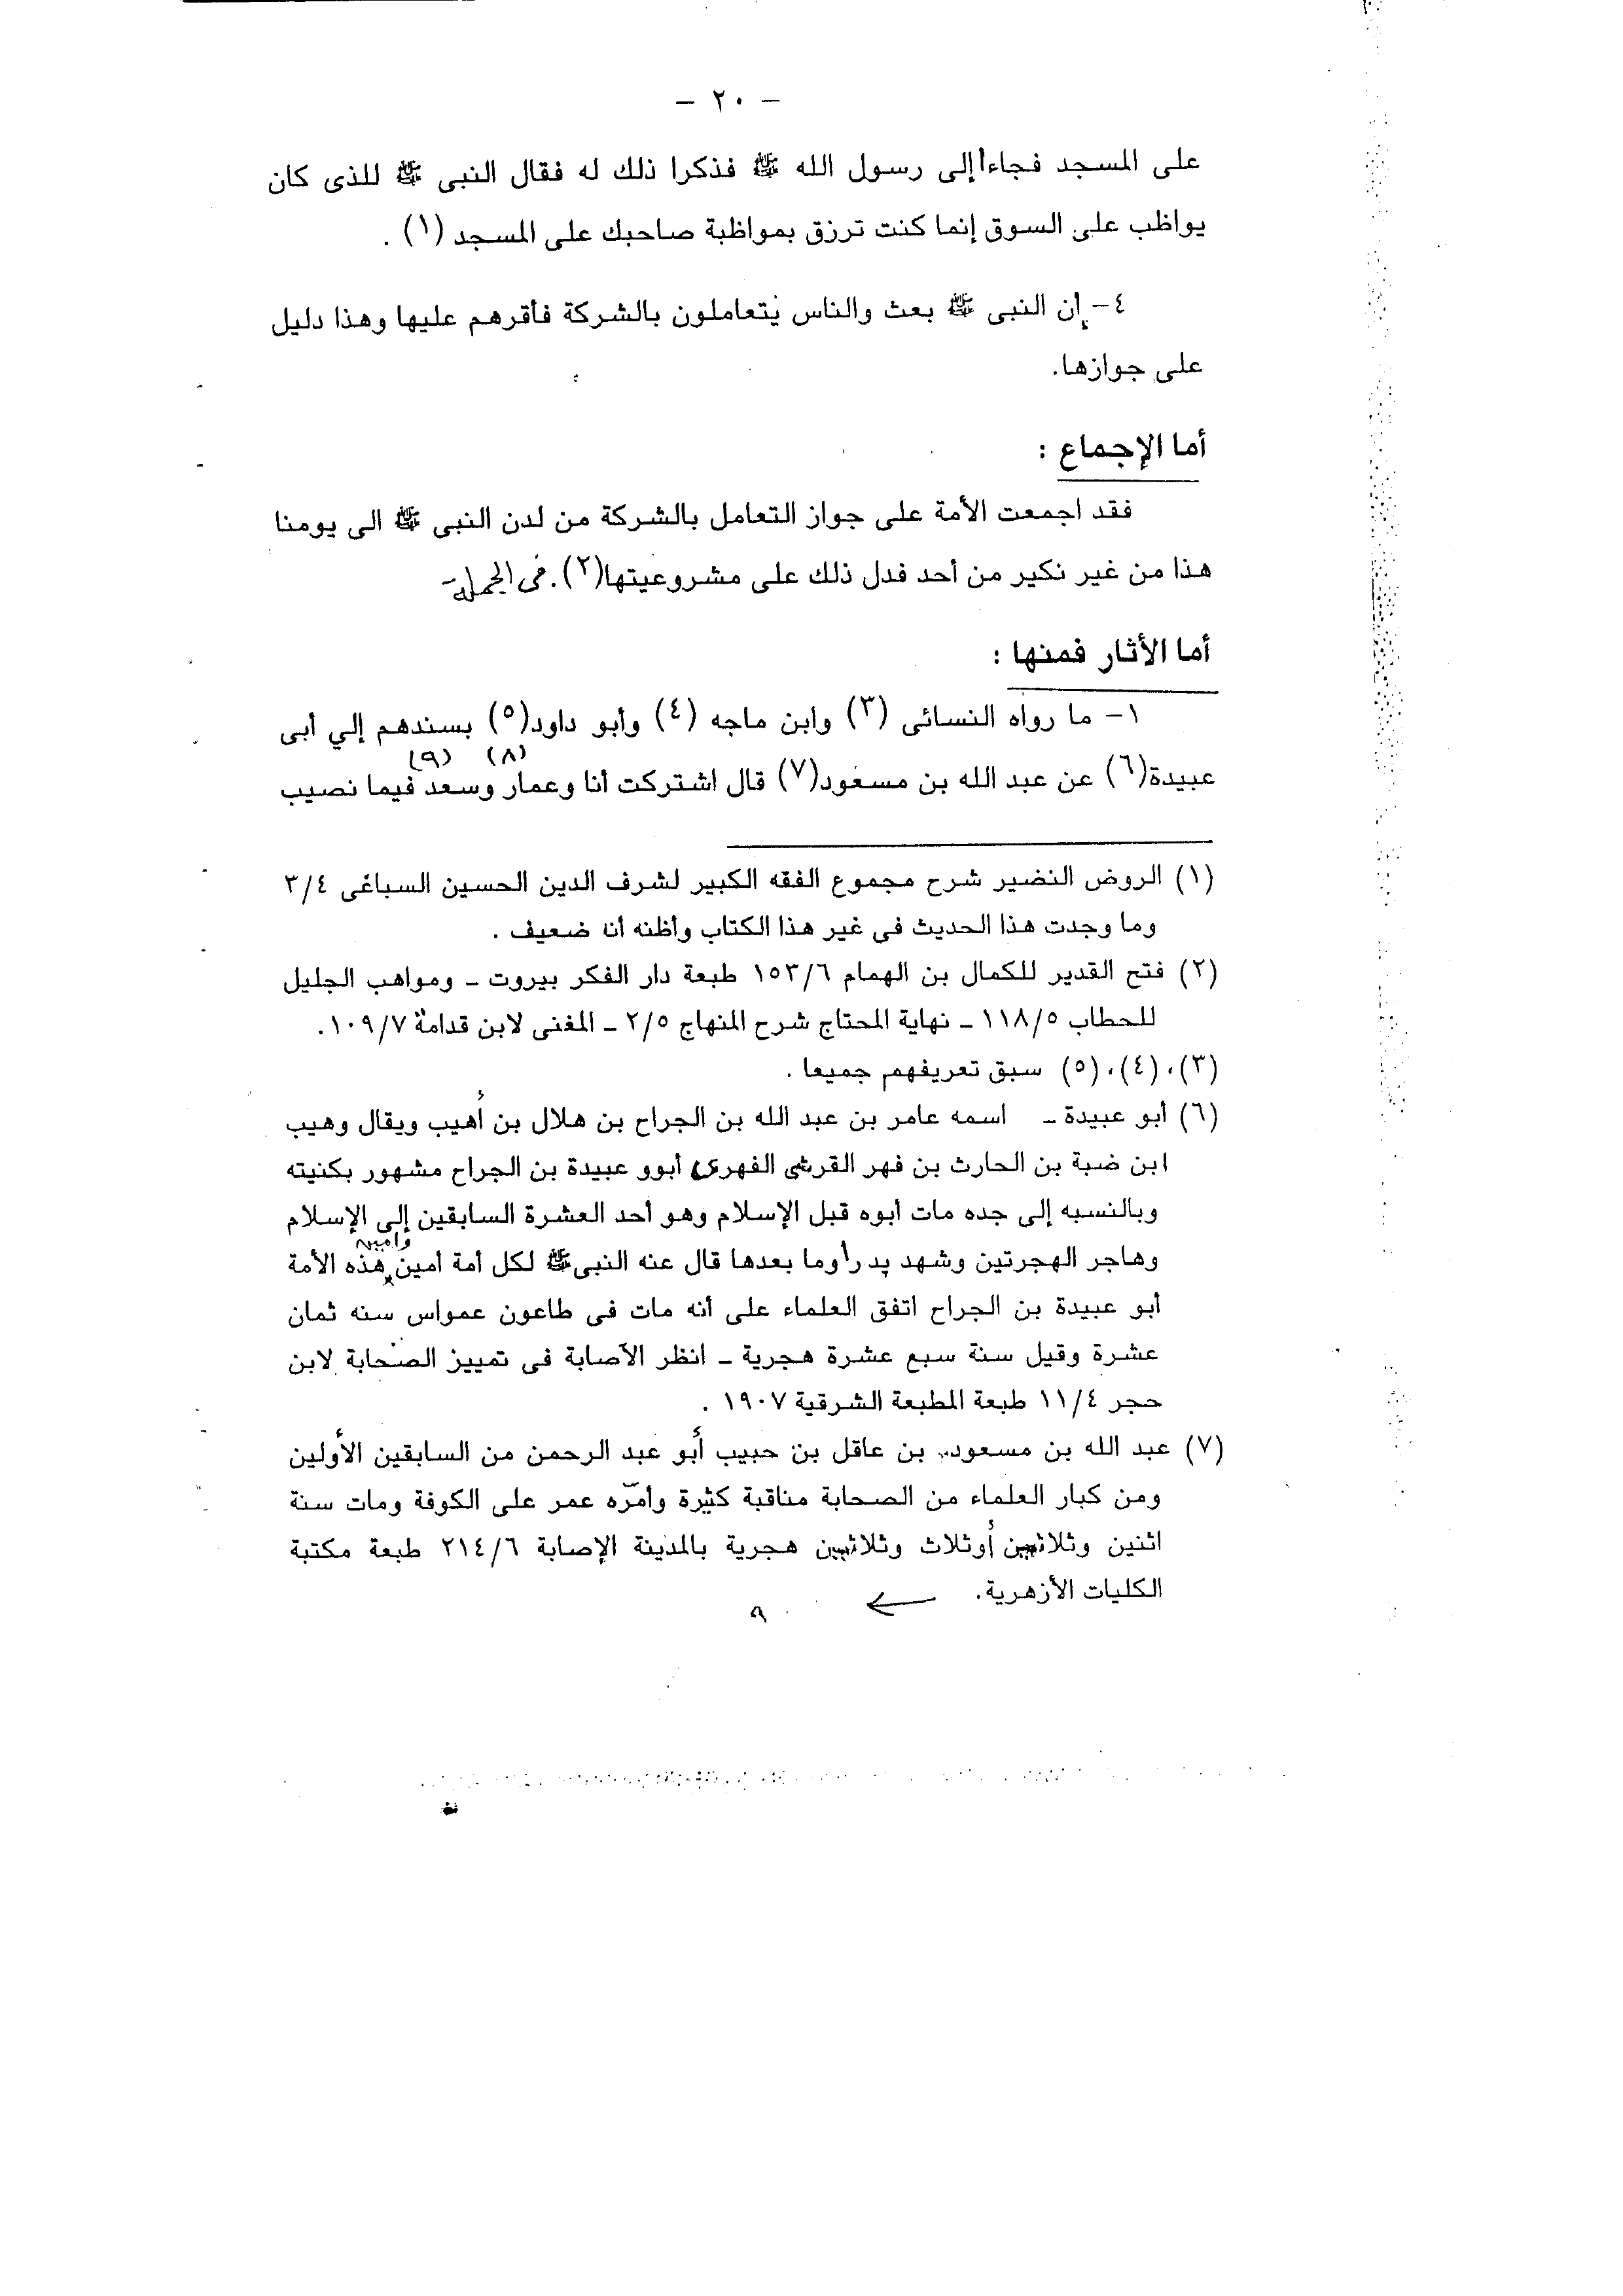 - ٢٠ -
على المسجد فجاءا إلى رسول الله ﷺ فذكرا ذلك له فقال النبى ﷺ للذى كان
يواظب على السوق إنما كنت ترزق بمواظبة صاحبك على المسجد (١) .
٤- إن النبى ﷺ بعث والناس يتعاملون بالشركة فأقرهم عليها وهذا دليل
على جوازها.
أما الإجماع :
فقد اجمعت الأمة على جواز التعامل بالشركة من لدن النبى ﷺ الى يومنا
هذا من غير نكير من أحد فدل ذلك على مشروعيتها(٢). فى الجملة-
أما الأثار فمنها :
١- ما رواه النسائى (٣) وابن ماجه (٤) وأبو داود(٥) بسندهم إلي أبى
(٨) (٩)
عبيدة(٦) عن عبد الله بن مسعود(٧) قال اشتركت أنا وعمار وسعد فيما نصيب
(١) الروض النضير شرح مجموع الفقه الكبير لشرف الدين الحسين السباغى ٣/٤
وما وجدت هذا الحديث فى غير هذا الكتاب وأظنه أنا ضعيف .
(٢) فتح القدير للكمال بن الهمام ١٥٣/٦ طبعة دار الفكر بيروت ـ ومواهب الجليل
للحطاب ١١٨/٥ ـ نهاية المحتاج شرح المنهاج ٢/٥ ـ المغنى لابن قدامة ١٠٩/٧.
(٣)، (٤)، (٥) سبق تعريفهم جميعا .
(٦) أبو عبيدة ـ اسمه عامر بن عبد الله بن الجراح بن هلال بن أهيب ويقال وهيب
ابن ضبة بن الحارث بن فهر القرشى الفهرى أبوو عبيدة بن الجراح مشهور بكنيته
وبالنسبه إلى جده مات أبوه قبل الإسلام وهو أحد العشرة السابقين إلى الإسلام
وأمين
وهاجر الهجرتين وشهد بدراً وما بعدها قال عنه النبى ﷺ لكل أمة أمين هذه الأمة
أبو عبيدة بن الجراح اتفق العلماء على أنه مات فى طاعون عمواس سنه ثمان
عشرة وقيل سنة سبع عشرة هجرية ـ انظر الآصابة فى تمييز الصحابة لابن
حجر ١١/٤ طبعة المطبعة الشرقية ١٩٠٧ .
(٧) عبد الله بن مسعود بن عاقل بن حبيب أبو عبد الرحمن من السابقين الأولين
ومن كبار العلماء من الصحابة مناقبة كثيرة وأمّره عمر على الكوفة ومات سنة
اثنين وثلاثين أوثلاث وثلاثين هجرية بالمدينة الإصابة ٢١٤/٦ طبعة مكتبة
الكليات الأزهرية. ←
٩